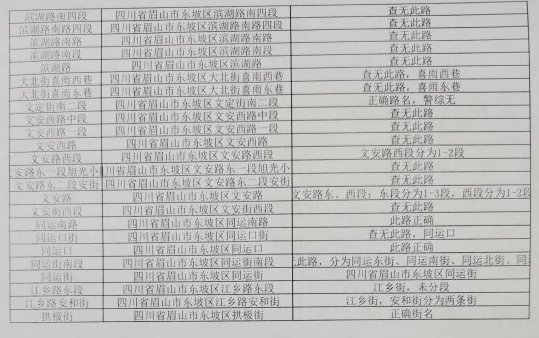 滨湖路南四段 四川省眉山市东坡区滨湖路南四段 查无此路
滨湖路南路四段 四川省眉山市东坡区滨湖路南路四段 查无此路
滨湖路南路 四川省眉山市东坡区滨湖路南路 查无此路
滨湖路南段 四川省眉山市东坡区滨湖路南段 查无此路
滨湖路 四川省眉山市东坡区滨湖路 查无此路
大北街喜雨西巷 四川省眉山市东坡区大北街喜雨西巷 查无此路，喜雨西巷
大北街喜雨东巷 四川省眉山市东坡区大北街喜雨东巷 查无此路，喜雨东巷
文定街南二段 四川省眉山市东坡区文定街南二段 正确路名，警综无
文安路西中段 四川省眉山市东坡区文安路西中段 查无此路
文安路西一段 四川省眉山市东坡区文安路西一段 查无此路
文安路西 四川省眉山市东坡区文安路西 查无此路
文安路西段 四川省眉山市东坡区文安路西段 文安路西段分为1-2段
安路东一段旭光小 川省眉山市东坡区文安路东一段旭光小 查无此路
文安路东二段安街 四川省眉山市东坡区文安路东二段安街 查无此路
文安路 四川省眉山市东坡区文安路 文安路东、西段；东段分为1-3段，西段分为1-2段
文安街西段 四川省眉山市东坡区文安街西段 查无此路
同运南路 四川省眉山市东坡区同运南路 此路正确
同运口街 四川省眉山市东坡区同运口街 查无此路，同运口
同运口 四川省眉山市东坡区同运口 此路正确
同运街南段 四川省眉山市东坡区同运街南段 此路，分为同运东街、同运南街、同运北街、同
同运街 四川省眉山市东坡区同运街 四川省眉山市东坡区同运街
江乡路东段 四川省眉山市东坡区江乡路东段 江乡街，未分段
江乡路安和街 四川省眉山市东坡区江乡路安和街 江乡街，安和街分为两条街
拱极街 四川省眉山市东坡区拱极街 正确街名